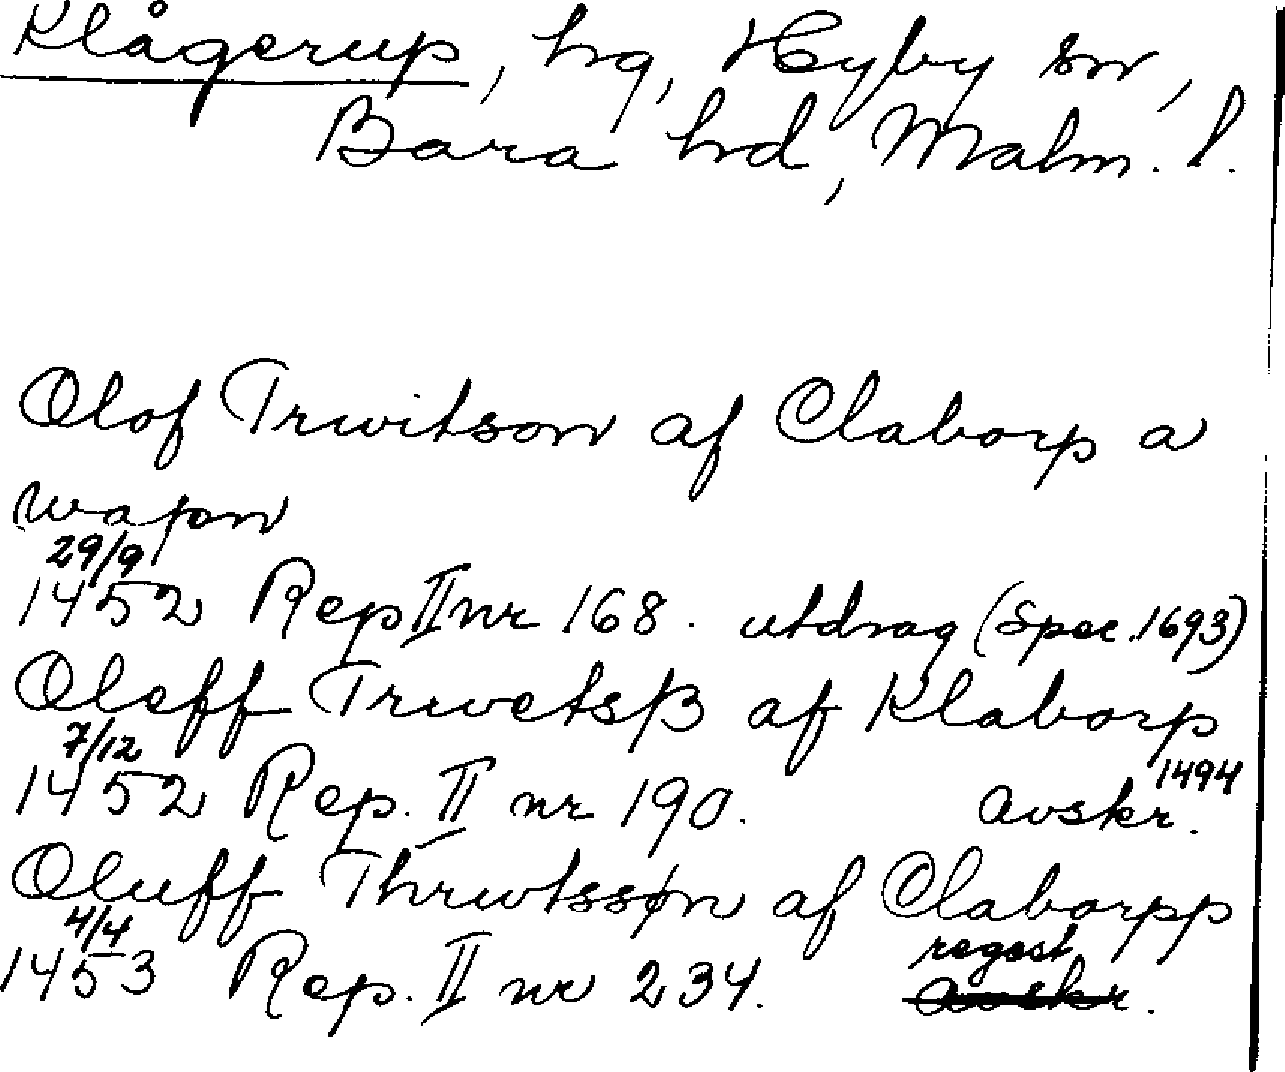 Klågerup, hg, Hyby sn,
Bara hd, Malm. l.
Olof Trwitson af Claborp a
wapn
29/9
1452 Rep II nr 168. utdrag (Spec. 1693)
Oleff Trwetsß af Klaborp
7/12
1452 Rep. II nr 190. avskr. 1494
Oluff Thrwtssøn af Claborpp
4/4 regest
1453 Rep. II nr 234. avskr.